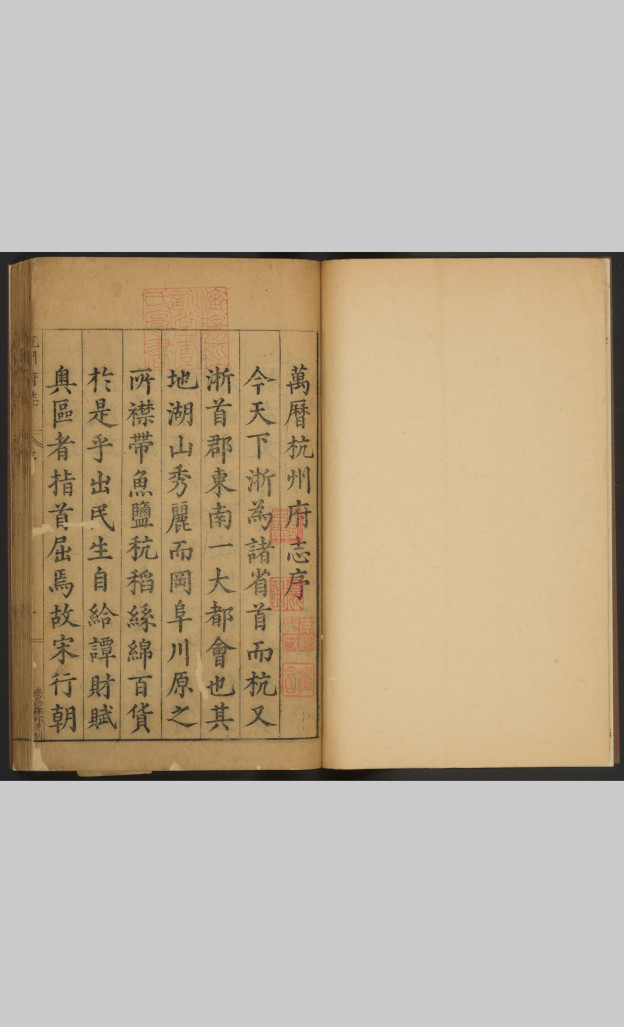 萬曆杭州府志序
今天下浙為諸省首而杭又
浙首郡東南一大都會也其
地湖山秀麗而岡阜川原之
所襟帶魚鹽秔稻絲綿百貨
於是乎出民生自給譚財賦
奧區者指首屈焉故宋行朝